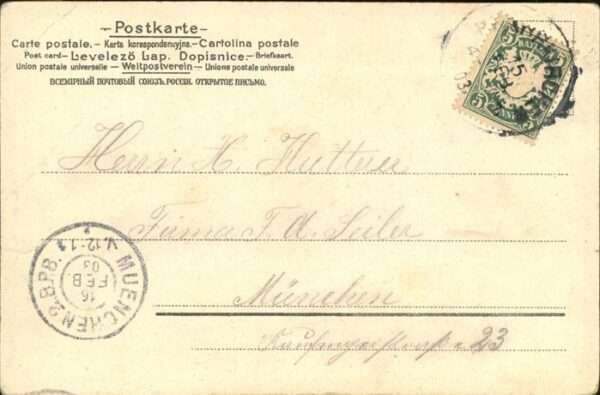 Postkarte
Carte postale. – Karta korespondencyjna. – Cartolina postale
Post card – Levelező Lap. Dopisnice. – Briefkaart.
Union postale universelle – Weltpostverein – Unione postale universale
ВСЕМІРНЫЙ ПОЧТОВЫЙ СОЮЗЪ. РОССІЯ. ОТКРЫТОЕ ПИСЬМО.
5 BAYERN 5
Herrn H. Huttner
Firma F. A. Seiler
München
23
MUENCHEN 2 B.P.B.
V. 12-1
16
FEB
03